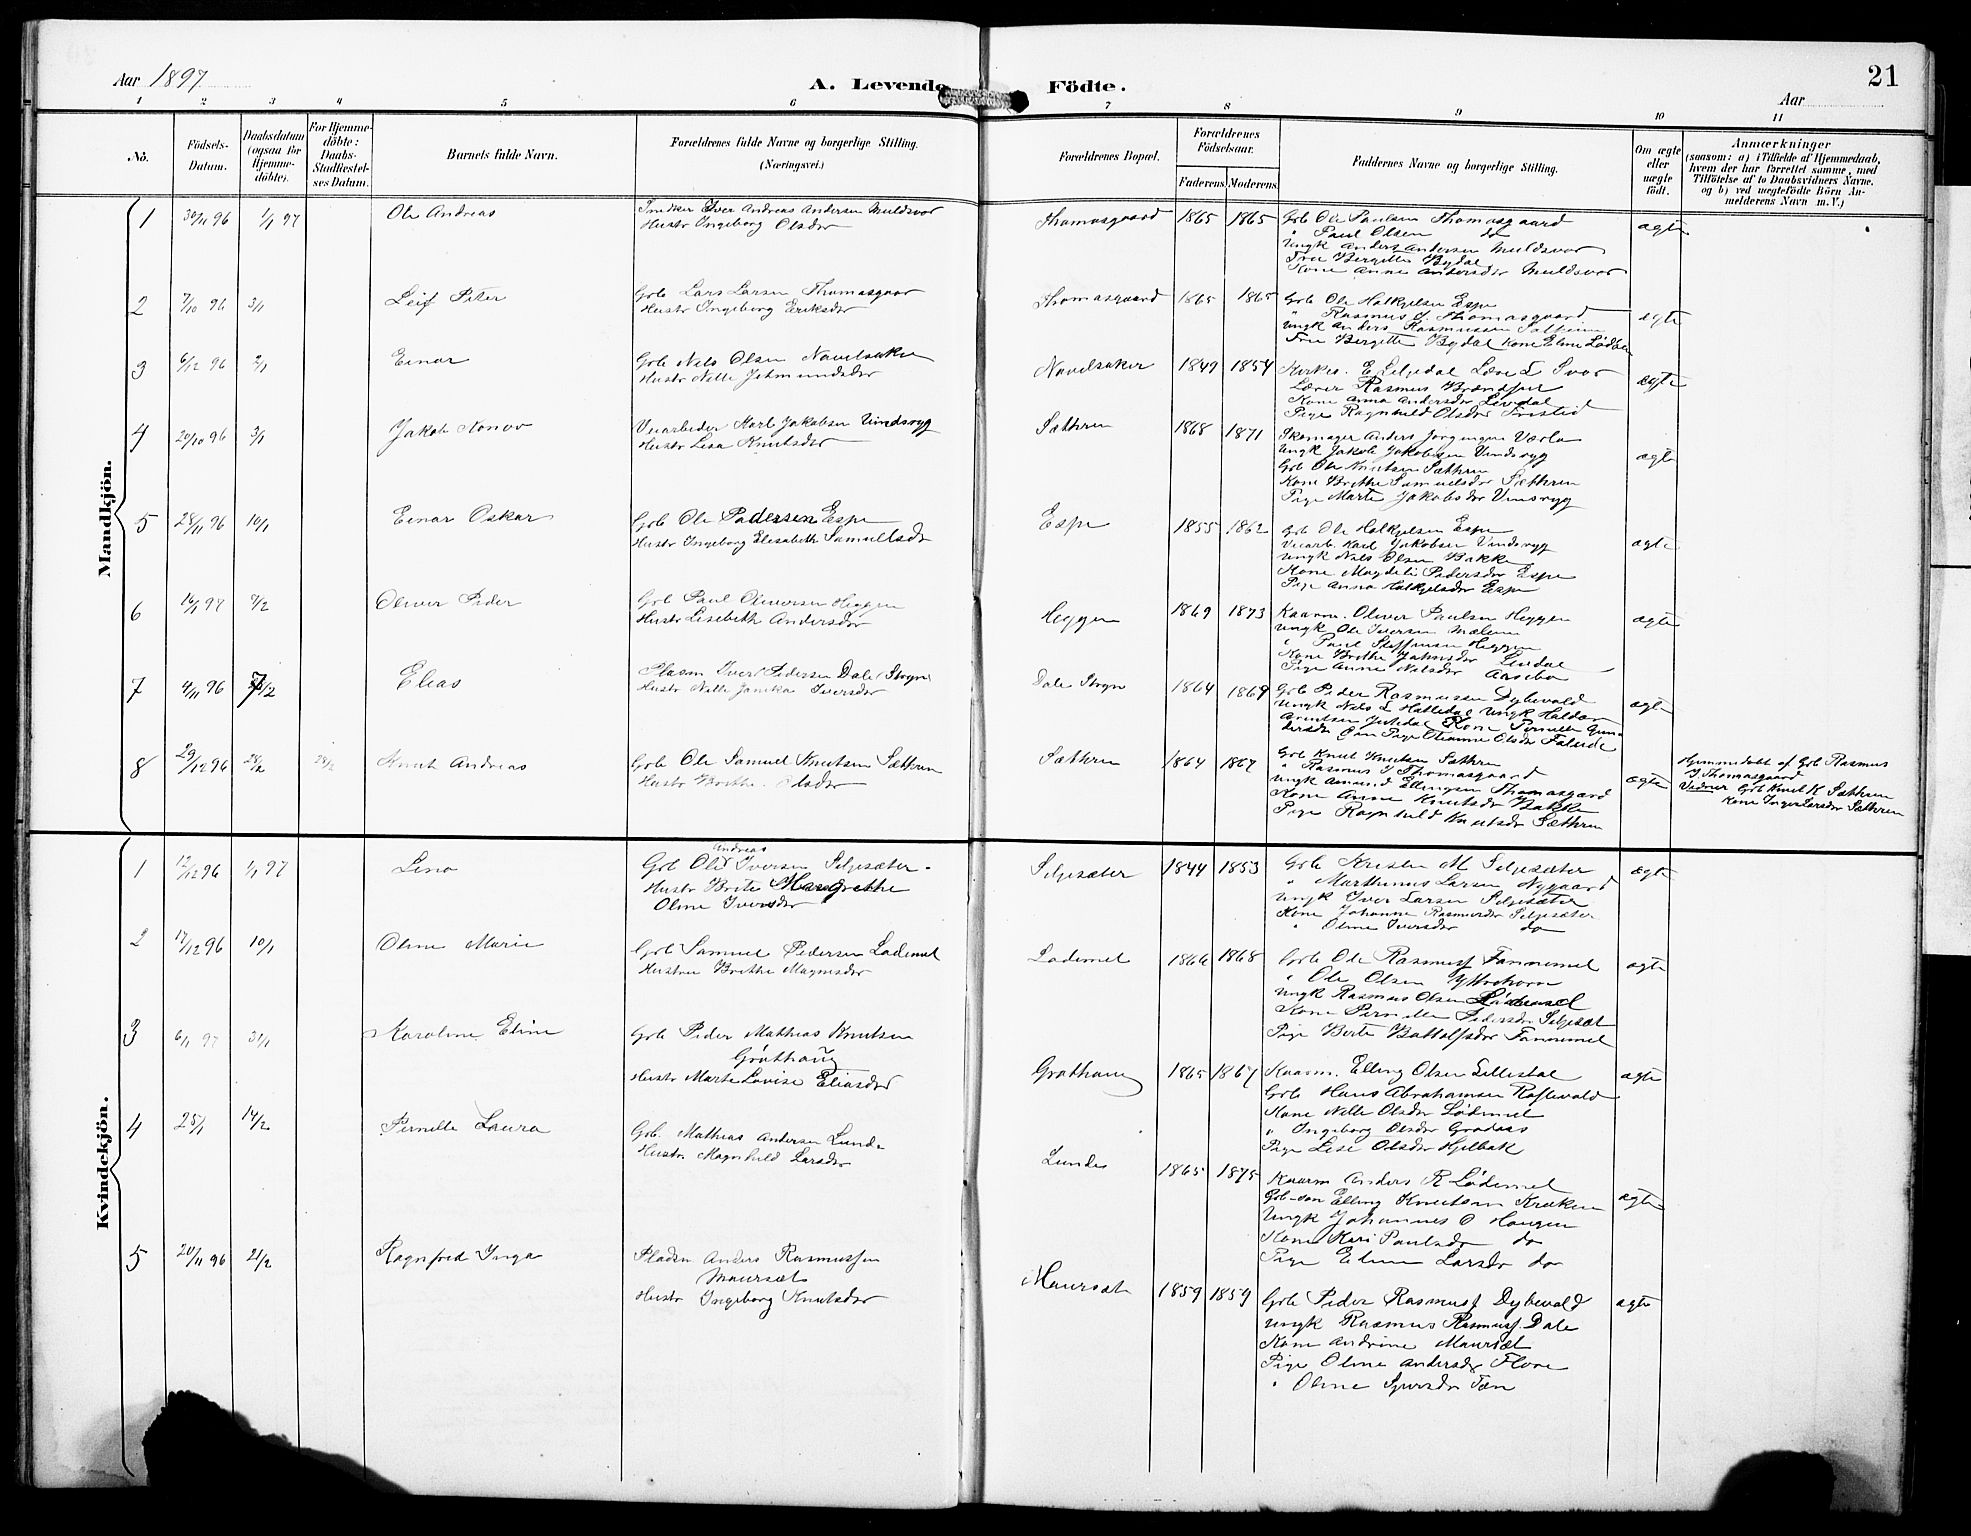 Aar 1897
A. Levende Födte.
21
Aar
1 2 3 4 5 6 7 8 9 10 11
No.
Födsels-
Datum.
Daabsdatum
(ogsaa for
Hjemme-
döbte).
For Hjemme-
döbte:
Daabs-
Stadfæstel-
ses Datum.
Barnets fulde Navn.
Forældrenes fulde Navne og borgerlige Stilling.
(Næringsvei.)
Forældrenes Bopæl.
Forældrenes
Födselsaar.
Faderens Moderens
Faddernes Navne og borgerlige Stilling.
Om ægte
eller
uægte
födt.
Anmærkninger
(saasom: a) i Tilfælde af Hjemmedaab,
hvem der har forrettet samme, med
Tilföielse af to Daabsvidners Navne,
og b) ved uægtefödte Börn An-
melderens Navn m. V.)
Mandkjön.
1 30/11 96 1/1 97 Ole Andreas
Snedker Iver Andreas Andersen Muldsvor
Hustr Ingeborg Olsdtr
Thomasgaard 1865 1865
Gbr Ole Paulsen Thomasgaard
" Paul Olsen do
Ungk Anders Andersen Muldsvor
Frue Bergitte Bydal
Kone Anne Andersdtr Muldsvor
ægte
2 7/10 96 3/1 Leif Peter
Gbr Lars Larsen Thomasgaar
Hustr Ingeborg Eriksdtr
Thomasgaard 1865 1865
Gbr Ole Halkjelsen Espe
" Rasmus J. Thomasgaard
Ungk Anders Rasmussen Sætheim
Frue Bergitte Bydal Kone Eline Lødøen
ægte
3 6/12 96 2/1 Einar
Gbr Nils Olsen Navelsaker
Hustr Nille Jetmundsdtr
Navelsaker 1849 1854
Kirkes. E Seljedal Lærer L Svor
Lærer Rasmus Brændsæt
Kone Anna Andersdtr Levdal
Pige Ragnhild Olsdtr Tvistid
ægte
4 20/10 96 3/1 Jakob Konov
Veiarbeider Karl Jakobsen Vindsryg
Hustr Lisa Knutsdtr
Sæthren 1868 1871
Skomager Anders Jørgensen Værlo
Ungk Jakob Jakobsen Vindsryg
Gbr Ole Knutsen Sæthren
Kone Brithe Samuelsdtr Sæthren
Pige Marte Jakobsdtr Vinsryg
ægte
5 28/11 96 10/1 Einar Oskar
Gbr Ole Pedersen Espe
Hustr Ingeborg Elisabeth Samuelsdtr
Espe 1855 1862
Gbr Ole Halkjelsen Espe
Veiarb. Karl Jakobsen Vindsryg
Ungk Nils Olsen Bakke
Kone Magdeli Pedersdtr Espe
Pige Anna Halkjelsdtr Espe
ægte
6 16/1 97 7/2 Oliver Peder
Gbr Paul Oliversen Heggen
Hustr Lisebeth Andersdtr
Heggen 1869 1873
Kaarm. Oliver Paulsen Heggen
Ungk Ole Iversen Mælem
" Paul Steffensen Heggen
Kone Brithe Jahnsdtr Levdal
Pige Anne Nilsdtr Aarsebø
ægte
7 4/11 96 7/2 Elias
Pladsm Iver Pedersen Dale (Stryn)
Hustr Nille Janika Iversdtr
Dale Stryn 1864 1869
Gbr Peder Rasmussen Dybevold
Ungk Nils L Halledal Ungk Haldor
Arentsen Jutedal Kone Pernille Gun-
dersdtr Pige Olianne Olsdtr Faleide
ægte
8 29/12 96 28/2 28/2 Knut Andreas
Gbr Ole Samuel Knutsen Sæthren
Hustr Brithe Olsdtr
Sæthren 1864 1867
Gbr Knut Knutsen Sæthren
" Rasmus J Thomasgaard
Ungk Amund Ellingsen Thomasgaard
Kone Anne Knutsdtr Bakke
Pige Ragnhild Knutsdtr Sæthren
ægte
Hjemmedøbt af Gbr Rasmus
J. Thomasgaard
Vidner Gbr Knut K Sæthren
Kone Inger Larsdtr Sæthren
Kvindekjön.
1 12/12 96 1/1 97 Lina
Gbr Ole Andreas Iversen Seljesæter
Hustr Brite Margrethe
Oline Iversdtr
Seljesæter 1844 1853
Gbr Kristen M Seljesæter
" Marthinus Larsen Nygaard
Ungk Iver Larsen Seljesæter
Kone Johanne Rasmusdtr Seljesæter
" Oline Iversdtr do
ægte
2 17/12 96 10/1 Oline Marie
Gbr Samuel Pedersen Lødemel
Hustru Brithe Magnusdtr
Lødemel 1866 1868
Gbr Ole Rasmusf Fannemel
" Ole Olsen Yttrehorn
Ungk Rasmus Olsen Lødemel
Kone Pernille Pedersdtr Seljesæt
Pige Berte Battolfsdtr Fannemel
ægte
3 6/1 97 31/1 Karoline Eline
Gbr Peder Mathias Knutsen
Grøthaug
Hustr Marte Lovise Eliasdtr
Grøthaug 1865 1867
Kaarm. Elling Olsen Tillestøl
Gbr Hans Abrahamsen Raftevold
Kone Nille Olsdtr Lødemel
" Ingeborg Olsdtr Grodaas
Pige Lise Olsdtr Hjelbak
ægte
4 25/1 14/2 Pernille Laura
Gbr. Mathias Andersen Lunde
Hustr. Magnhild Larsdtr
Lunde 1865 1875
Kaarm Anders R Lødemel
Gbr-søn Elling Knutsen Kroken
Ungk Johannes O Haugen
Kone Kari Paulsdtr do
Pige Eline Larsdtr do
ægte
5 20/11 96 21/2 Ragnfrid Inga
Pladsm Anders Rasmussen
Maursæt
Hustr Ingeborg Knutsdtr
Maursæt 1859 1859
Gbr Peder Rasmusf Dybevold
Ungk Rasmus Rasmusf. Dale
Kone Andrine Maursæt
Pige Oline Andersdtr Flore
" Oline Sjursdtr Tæn
ægte